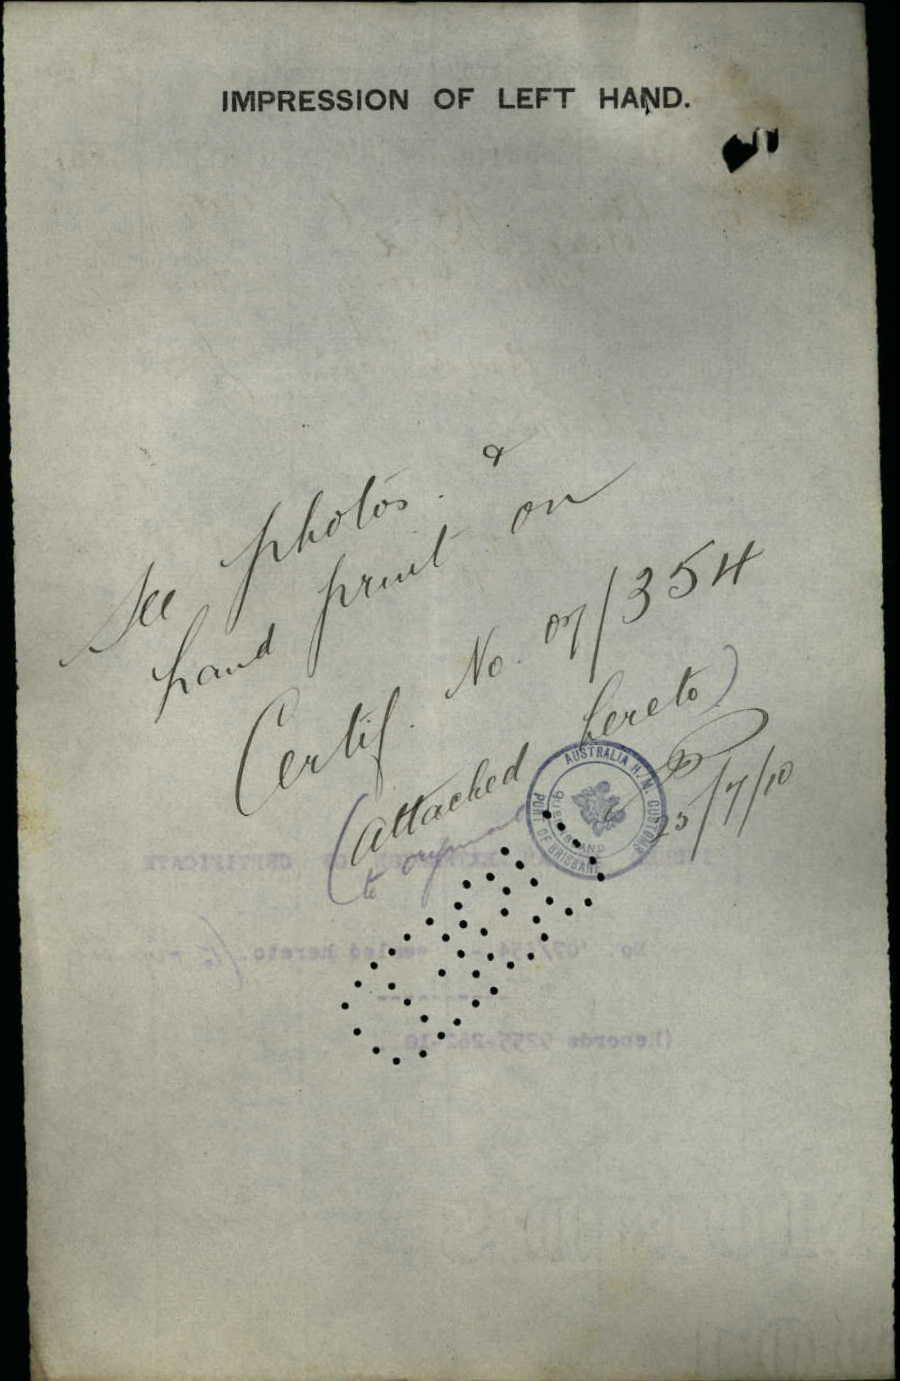 IMPRESSION OF LEFT HAND.
See photos. &
hand print on
Certif. No. 07/354
(attached hereto)
to original
25/7/10
AUSTRALIA H. M. CUSTOMS
PORT OF BRISBANE
QUEENSLAND